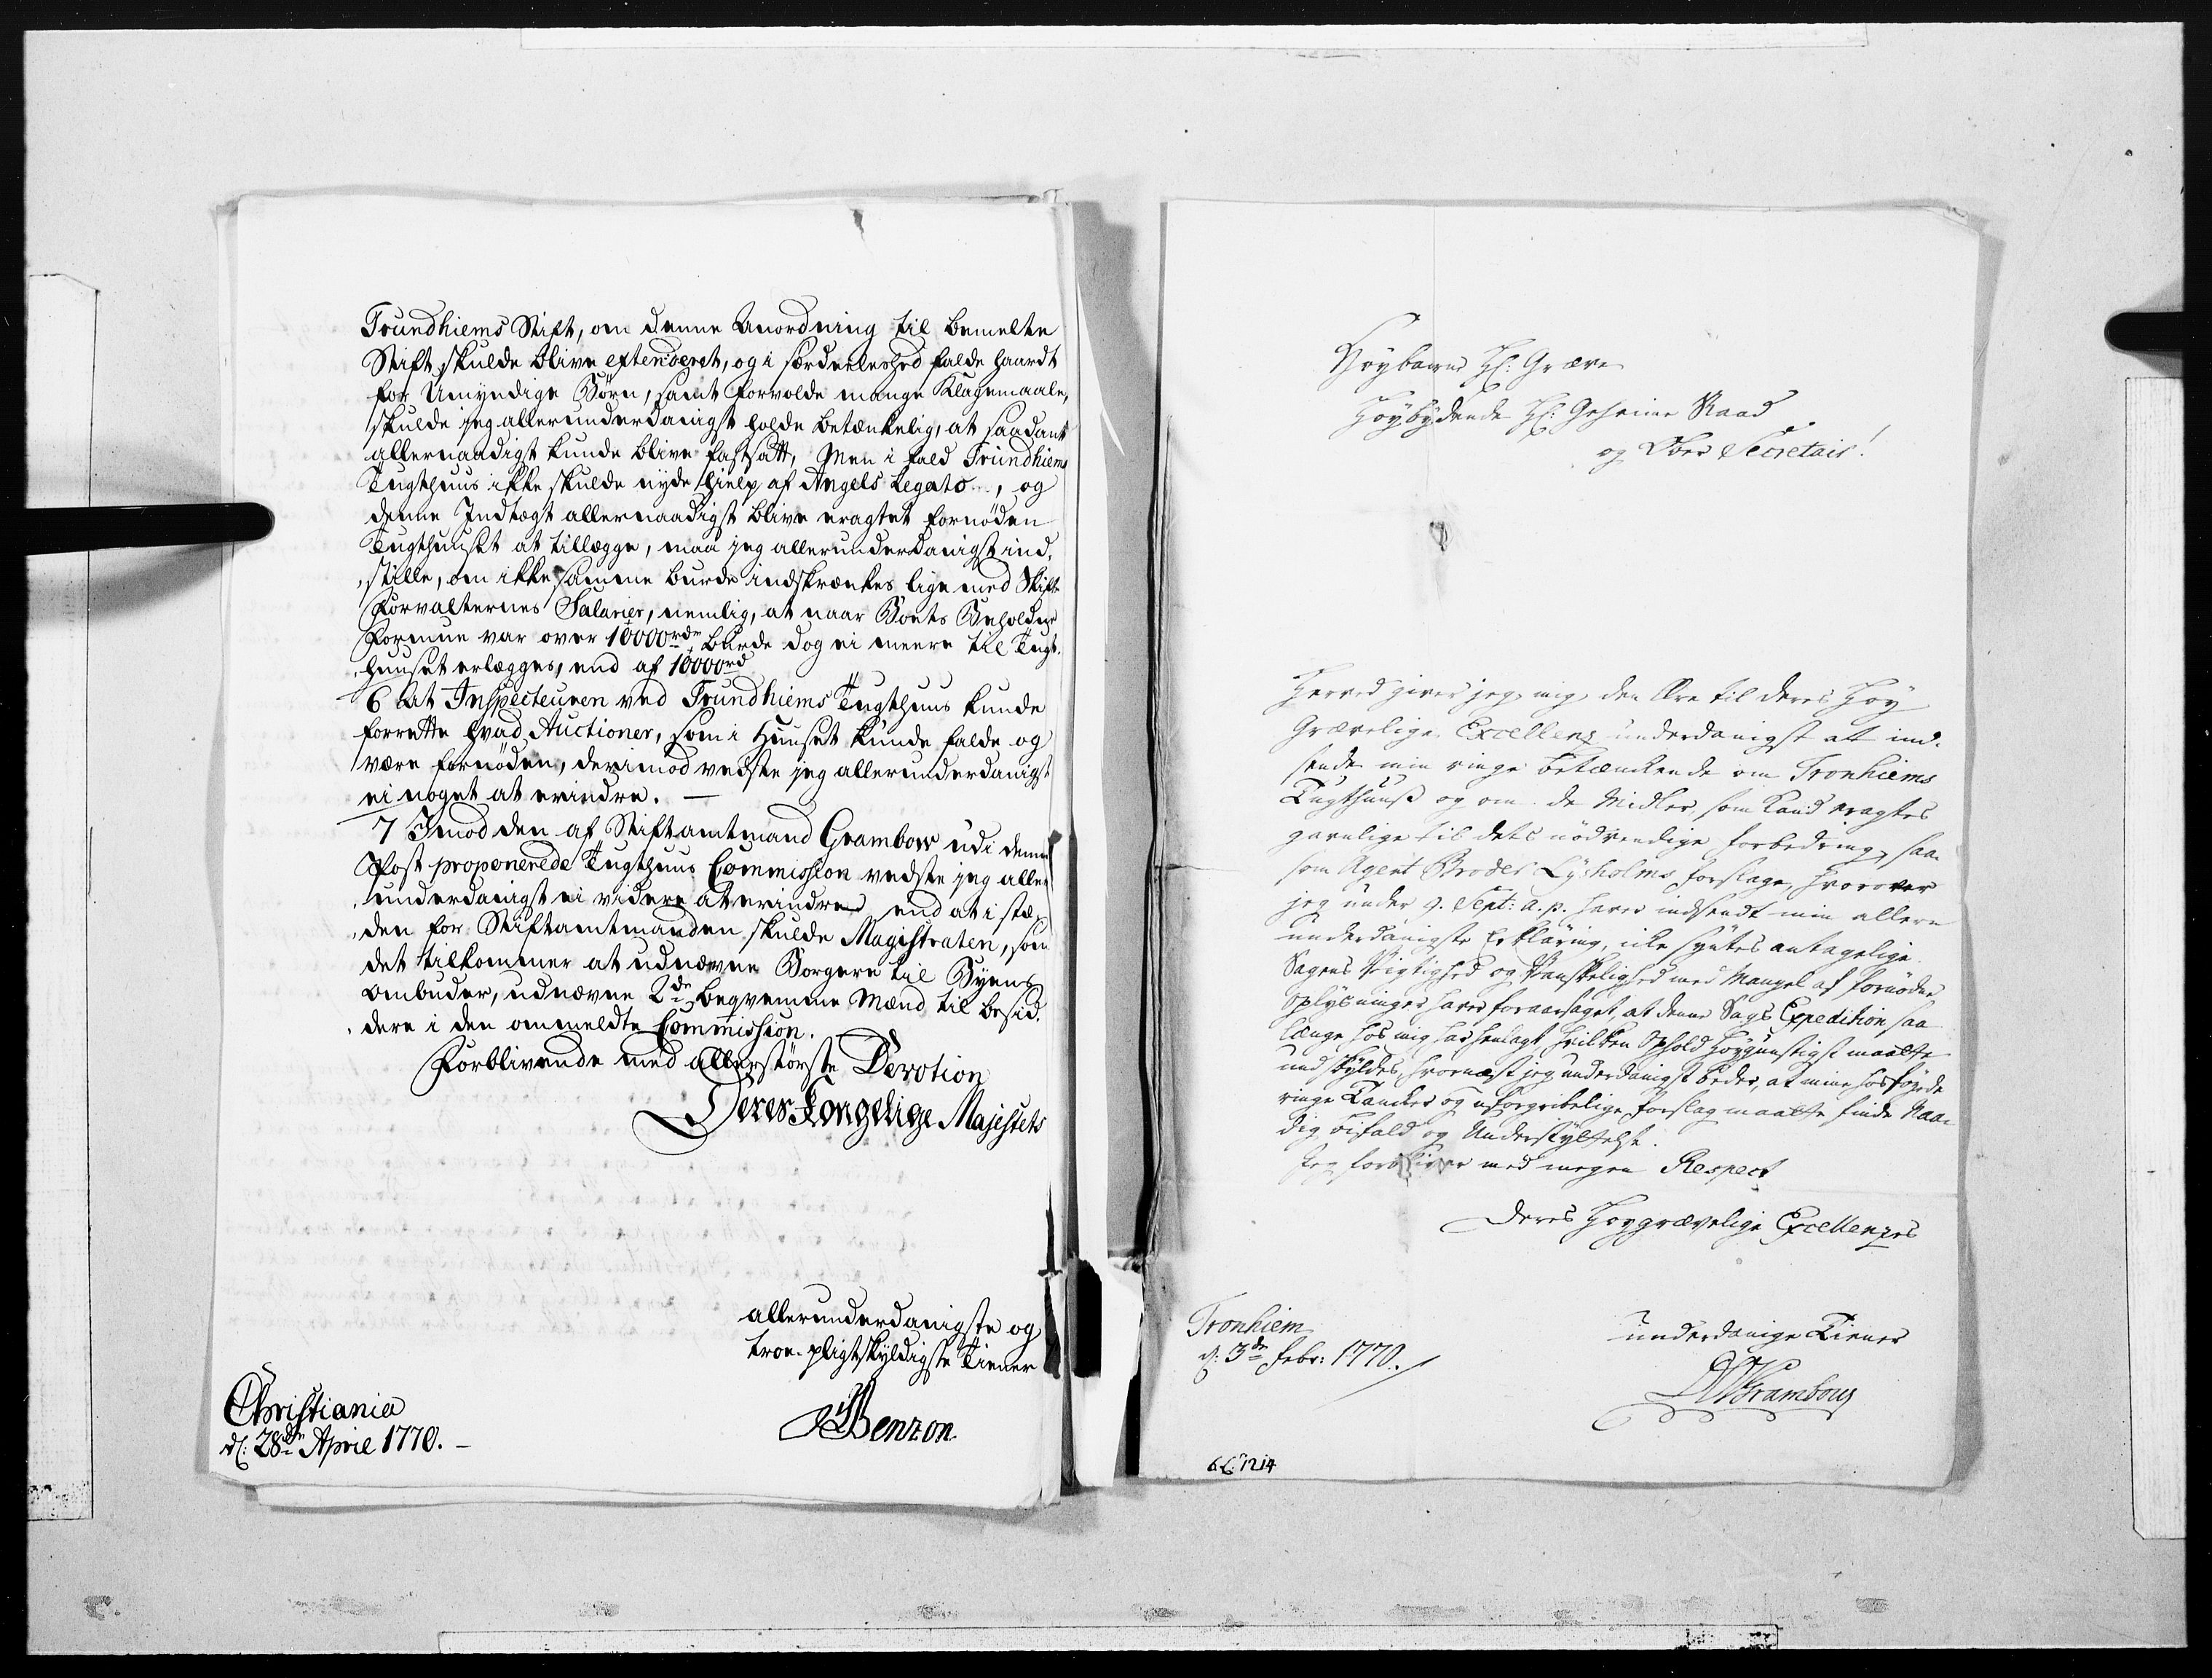 Trundhiems Stift, om denne Anordning til bemelte
Stift skulde blive extenderet, og i særdeeleshed falde haardt
for Umyndige Børn, samt forvolde mange Klagemaale,
skulde jeg allerunderdanigst holde betænkelig, at saadant
allernaadigst kunde blive fastsatt, Men i fald Trundhiems
Tugthuus ikke skulde nyde hielp af Angels Legato, og
denne Indtægt allernaadigst blive eragtet fornøden
Tugthuuset at tillægge, maa jeg allerunderdanigst ind-
stille, om ikke samme burde indskrænkes lige med Skifte
Forvalternes Salarier, nemlig, at naar Boets Beholdne
Formue var over 10000 rdr, burde dog ei meere til Tugt-
huuset erlægges, end af 10000 rd
6 At Inspecteuren ved Trundhiems Tugthuus kunde
forrette hvad Auctioner, som i Huuset kunde falde og
være fornøden, derimod vedste jeg allerunderdanigst
ei noget at erindre. —
7 Imod den af Stiftamtmand Grambow udi denne
Post proponerede Tugthuus Commission vedste jeg aller
underdanigst ei videre at erindre end at i stæ-
den for Stiftamtmanden, skulde Magistraten, som
det tilkommer at udnævne Borgere til Byens
Ombuder, udnævne 2de beqvemme Mænd til besid-
dere i den ommeldte Commission.
Forblivende med allerstørste Devotion
Deres Kongelige Majestets
allerunderdanigste og
troe-pligtskyldigste Tiener
Benzon
Christiania
d: 28de April 1770. —
Høybaarne Hr: Græve
Høybydende Hr: Geheime Raad
og Ober Secretair!
Herved giver jeg mig den Ære til Deres Høy
Grævelige Excellenz underdanigst at ind-
sende min ringe betænckende om Tronhiems
Tugthuus og om de Midler, som kand eragtes
gavnlige til dets nødvendige forbedring, saa-
som Agent Broder Lysholms forslage, hvorover
jeg under 9. Sept: a. p. haver indsendt min allere
underdanigste Erklæring, icke syntes antagelige.
Sagens Vigtighed og Vanskelighed med Mangel af fornødne
Oplysninger haver foraarsaget, at denne Sags Expedition saa
længe hos mig har henlagt hvilken Ophold Høygunstigst maatte
undskyldes, hvornæst jeg underdanigst beder, at mine hosføyede
ringe Tancker og uforgribelige forslag maatte finde Naa-
dig bifald og Understyttelse.
Jeg forbliver med megen Respect
Deres Høygrævelige Excellenzes
Tronhiem
d: 3de Febr: 1770.
underdanige Tiener
Grambow